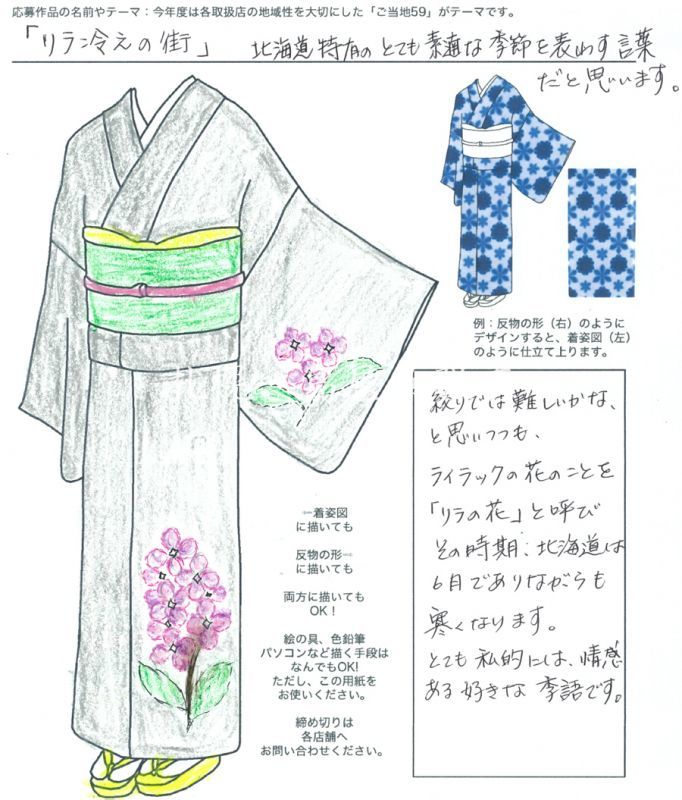 応募作品の名前やテーマ：今年度は各取扱店の地域性を大切にした「ご当地59」がテーマです。
「リラ冷えの街」 北海道特有のとても素適な季節を表わす言葉
だと思います。
例：反物の形（右）のように
デザインすると、着姿図（左）
のように仕立て上ります。
絞りでは難しいかな、
と思いつつも、
ライラックの花のことを
「リラの花」と呼び
その時期：北海道は
6月でありながらも
寒くなります。
とても私的には、情感
ある好きな季語です。
⇦着姿図
に描いても
反物の形⇨
に描いても
両方に描いても
OK！
絵の具、色鉛筆
パソコンなど描く手段は
なんでもOK!
ただし、この用紙を
お使いください。
締め切りは
各店舗へ
お問い合わせください。